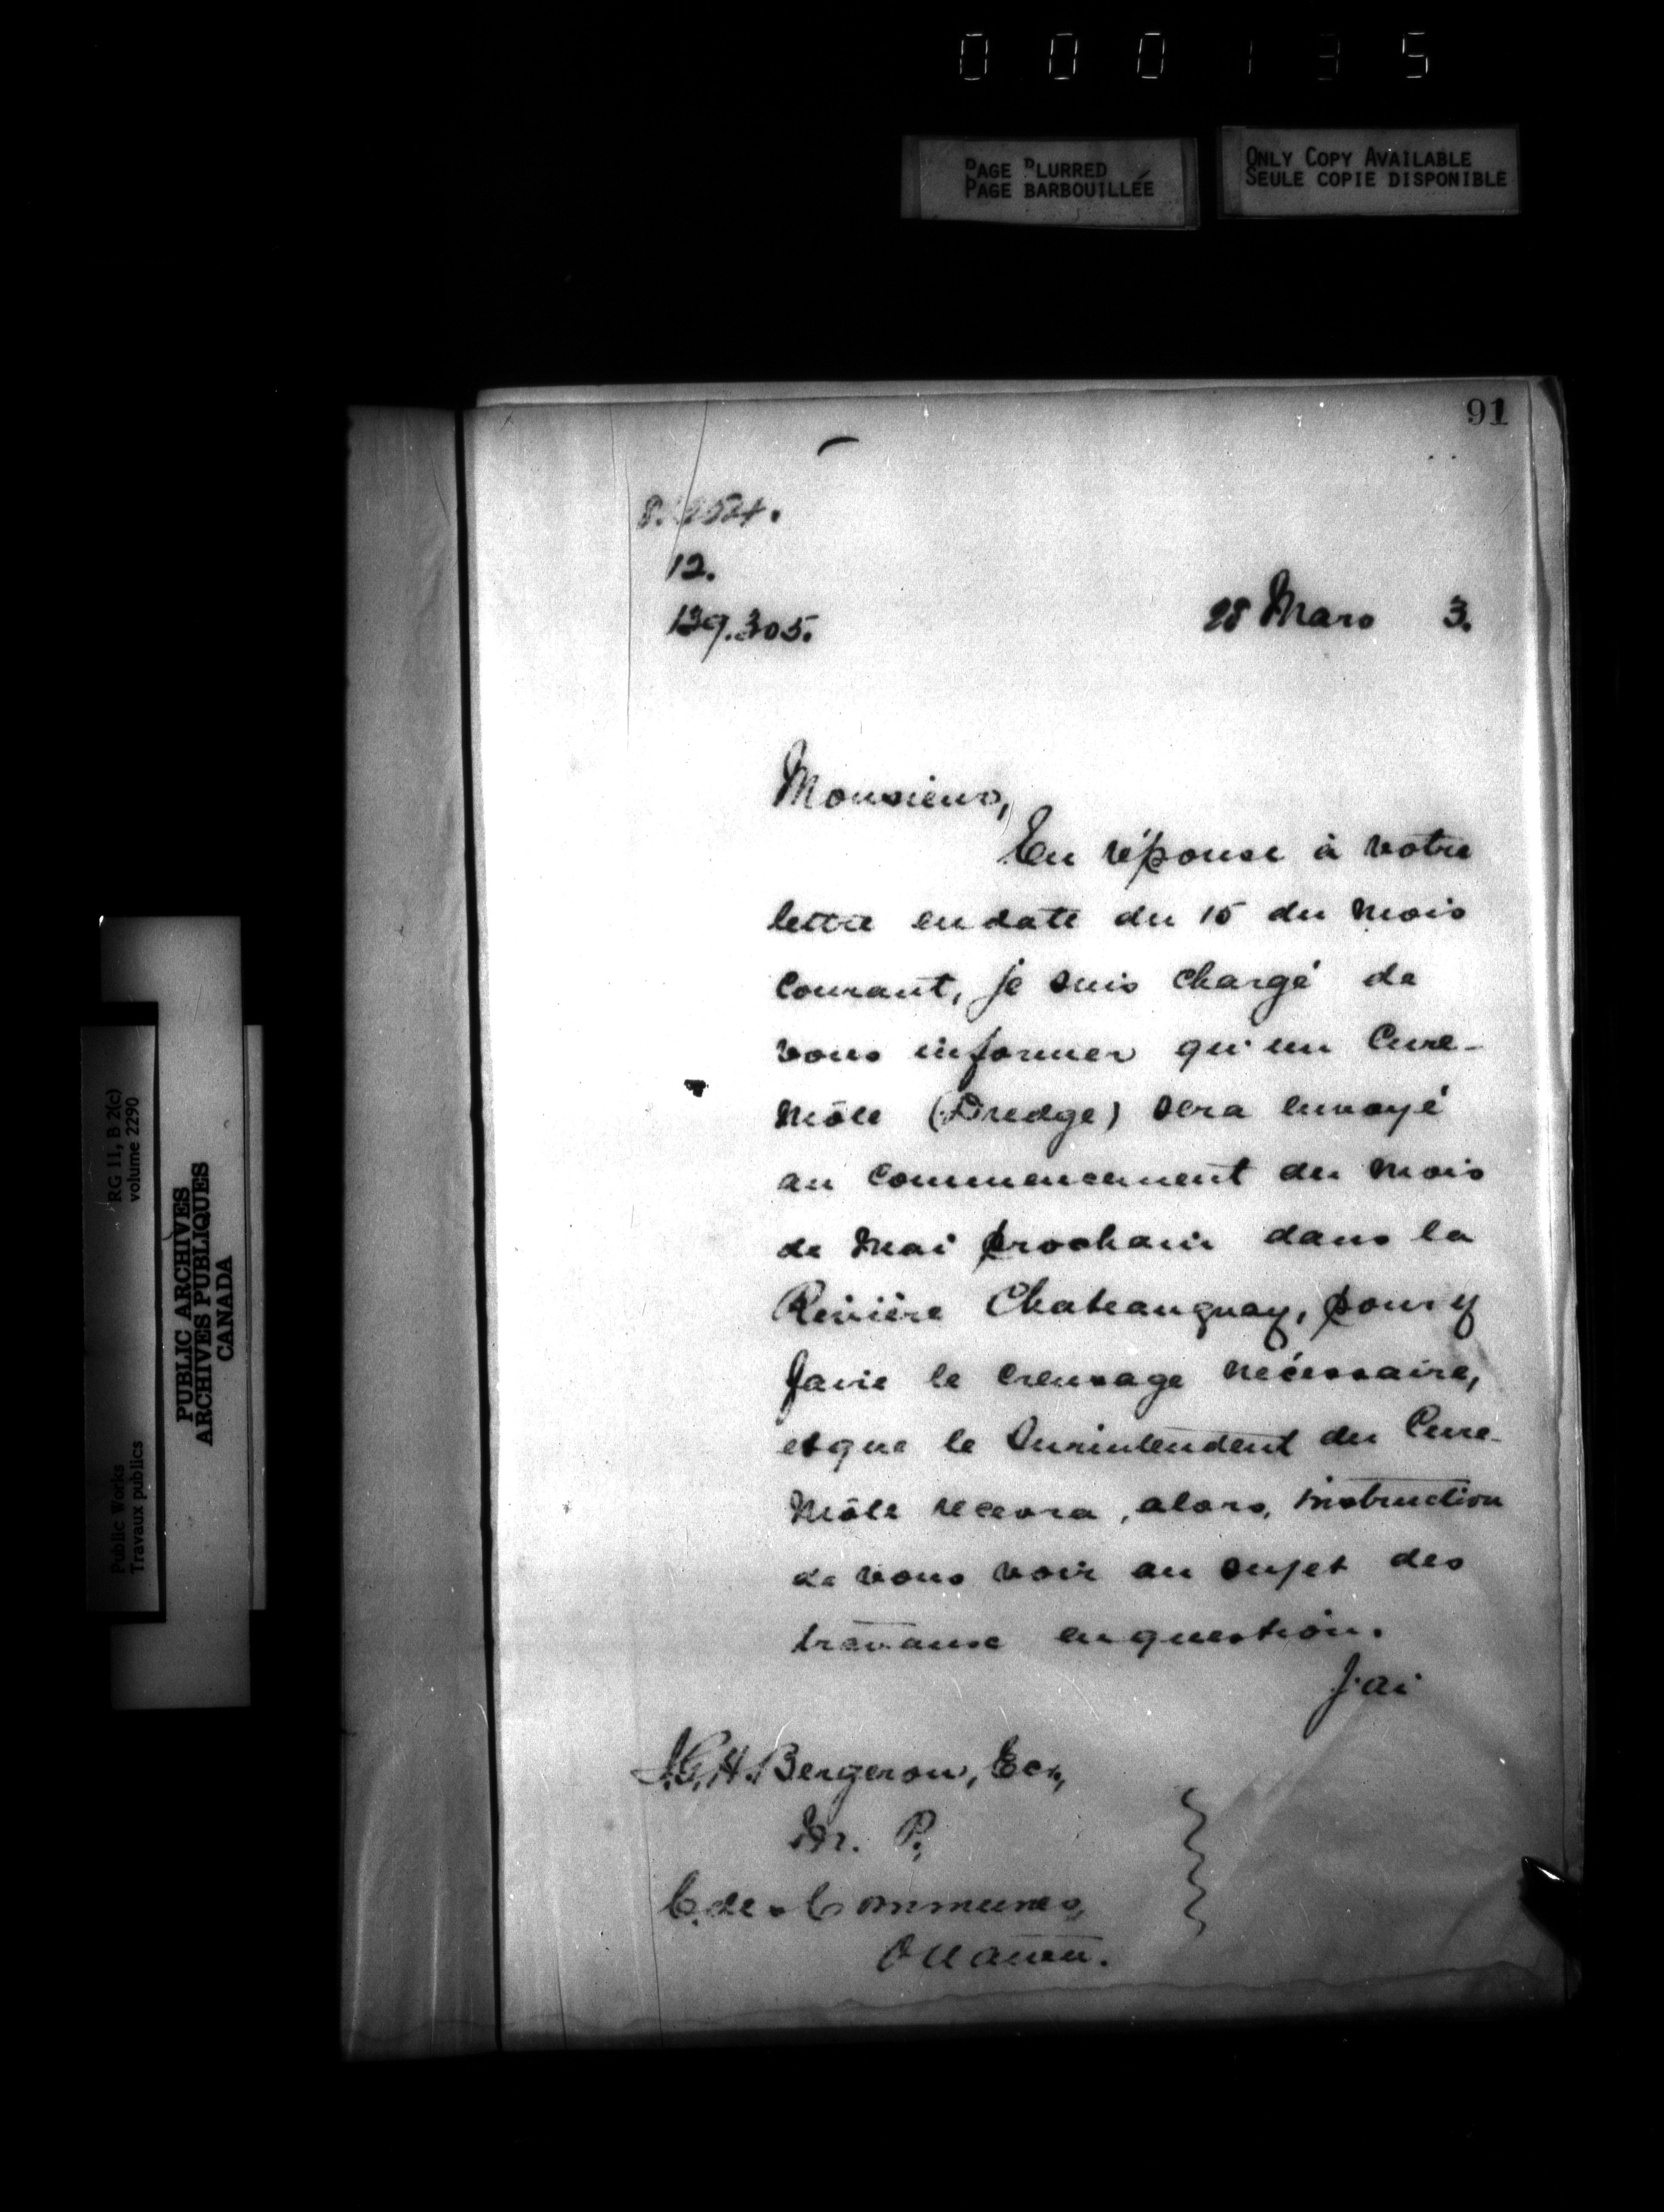 000135
PAGE BLURRED
PAGE BARBOUILLÉE
ONLY COPY AVAILABLE
SEULE COPIE DISPONIBLE
91
12.
139.305.
28 Mars 3.
Monsieur,
En réponse à votre
lettre en date du 15 du mois
courant, je suis chargé de
vous informer qu'un Cure-
môle (Dredge) sera envoyé
au commencement du mois
de Mai prochain dans la
Rivière Chateauguay, pour y
faire le creusage nécessaire,
et que le Surintendent du Cure-
môle recevra, alors, instruction
de vous voir au sujet des
travaux en question.
J'ai
J.G.H. Bergeron, Ecr.,
M. P.,
C. des Communes,
Ottawa.
RG 11, B 2(c)
volume 2290
PUBLIC ARCHIVES
ARCHIVES PUBLIQUES
CANADA
Public Works
Travaux publics